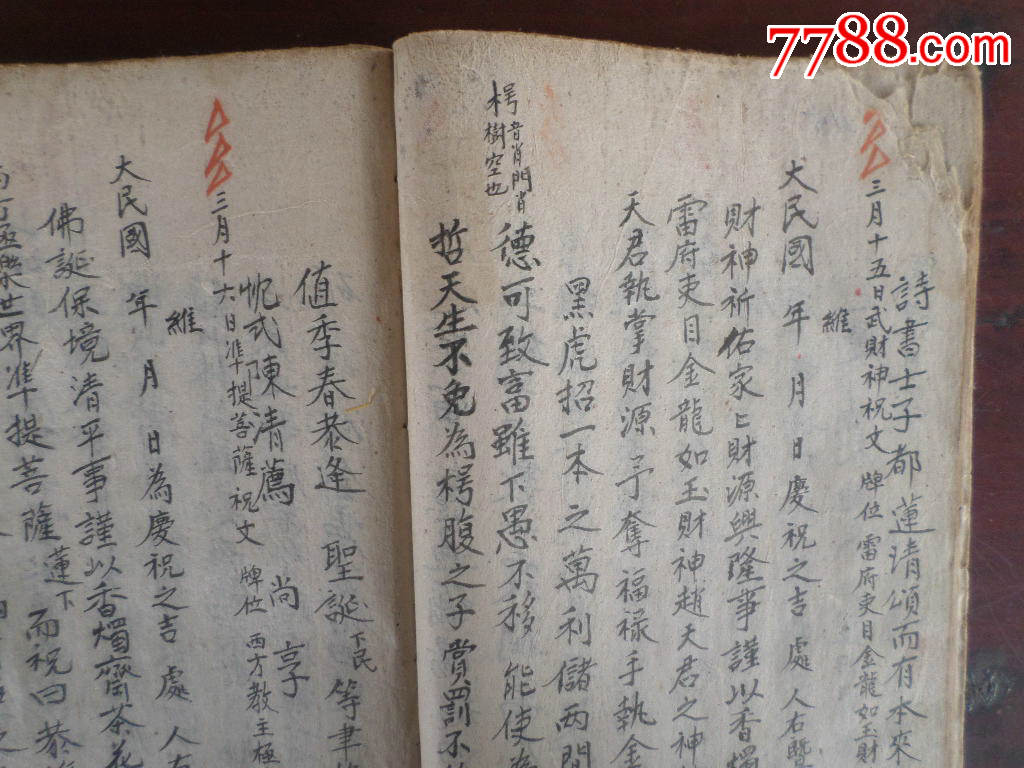 7788.com
詩書士子都蓮請頌而有本來
三月十五日武財神祝文 牌位 雷府吏目金龍如玉財
維
大民國 年 月 日慶祝之吉 處 人右暨
財神祈佑家匕財源興隆事謹以香燭
雷府吏目金龍如玉財神趙天君之神
天君執掌財源予奪福祿手執金
黑虎招一本之萬利儲兩間
德可致富雖下愚不移 能使為
楞音肖門肖
樹空也
哲天生不免為枵腹之子賞罰不
值季春恭逢 聖誕下民等聿
忱式陳清薦 尚享
三月十六日準提菩薩祝文 牌位 西方教主極
維
大民國 年 月 日為慶祝之吉 處 人右
佛誕保境清平事謹以香燭齋茶花
極樂世界準提菩薩蓮下 而祝曰 恭